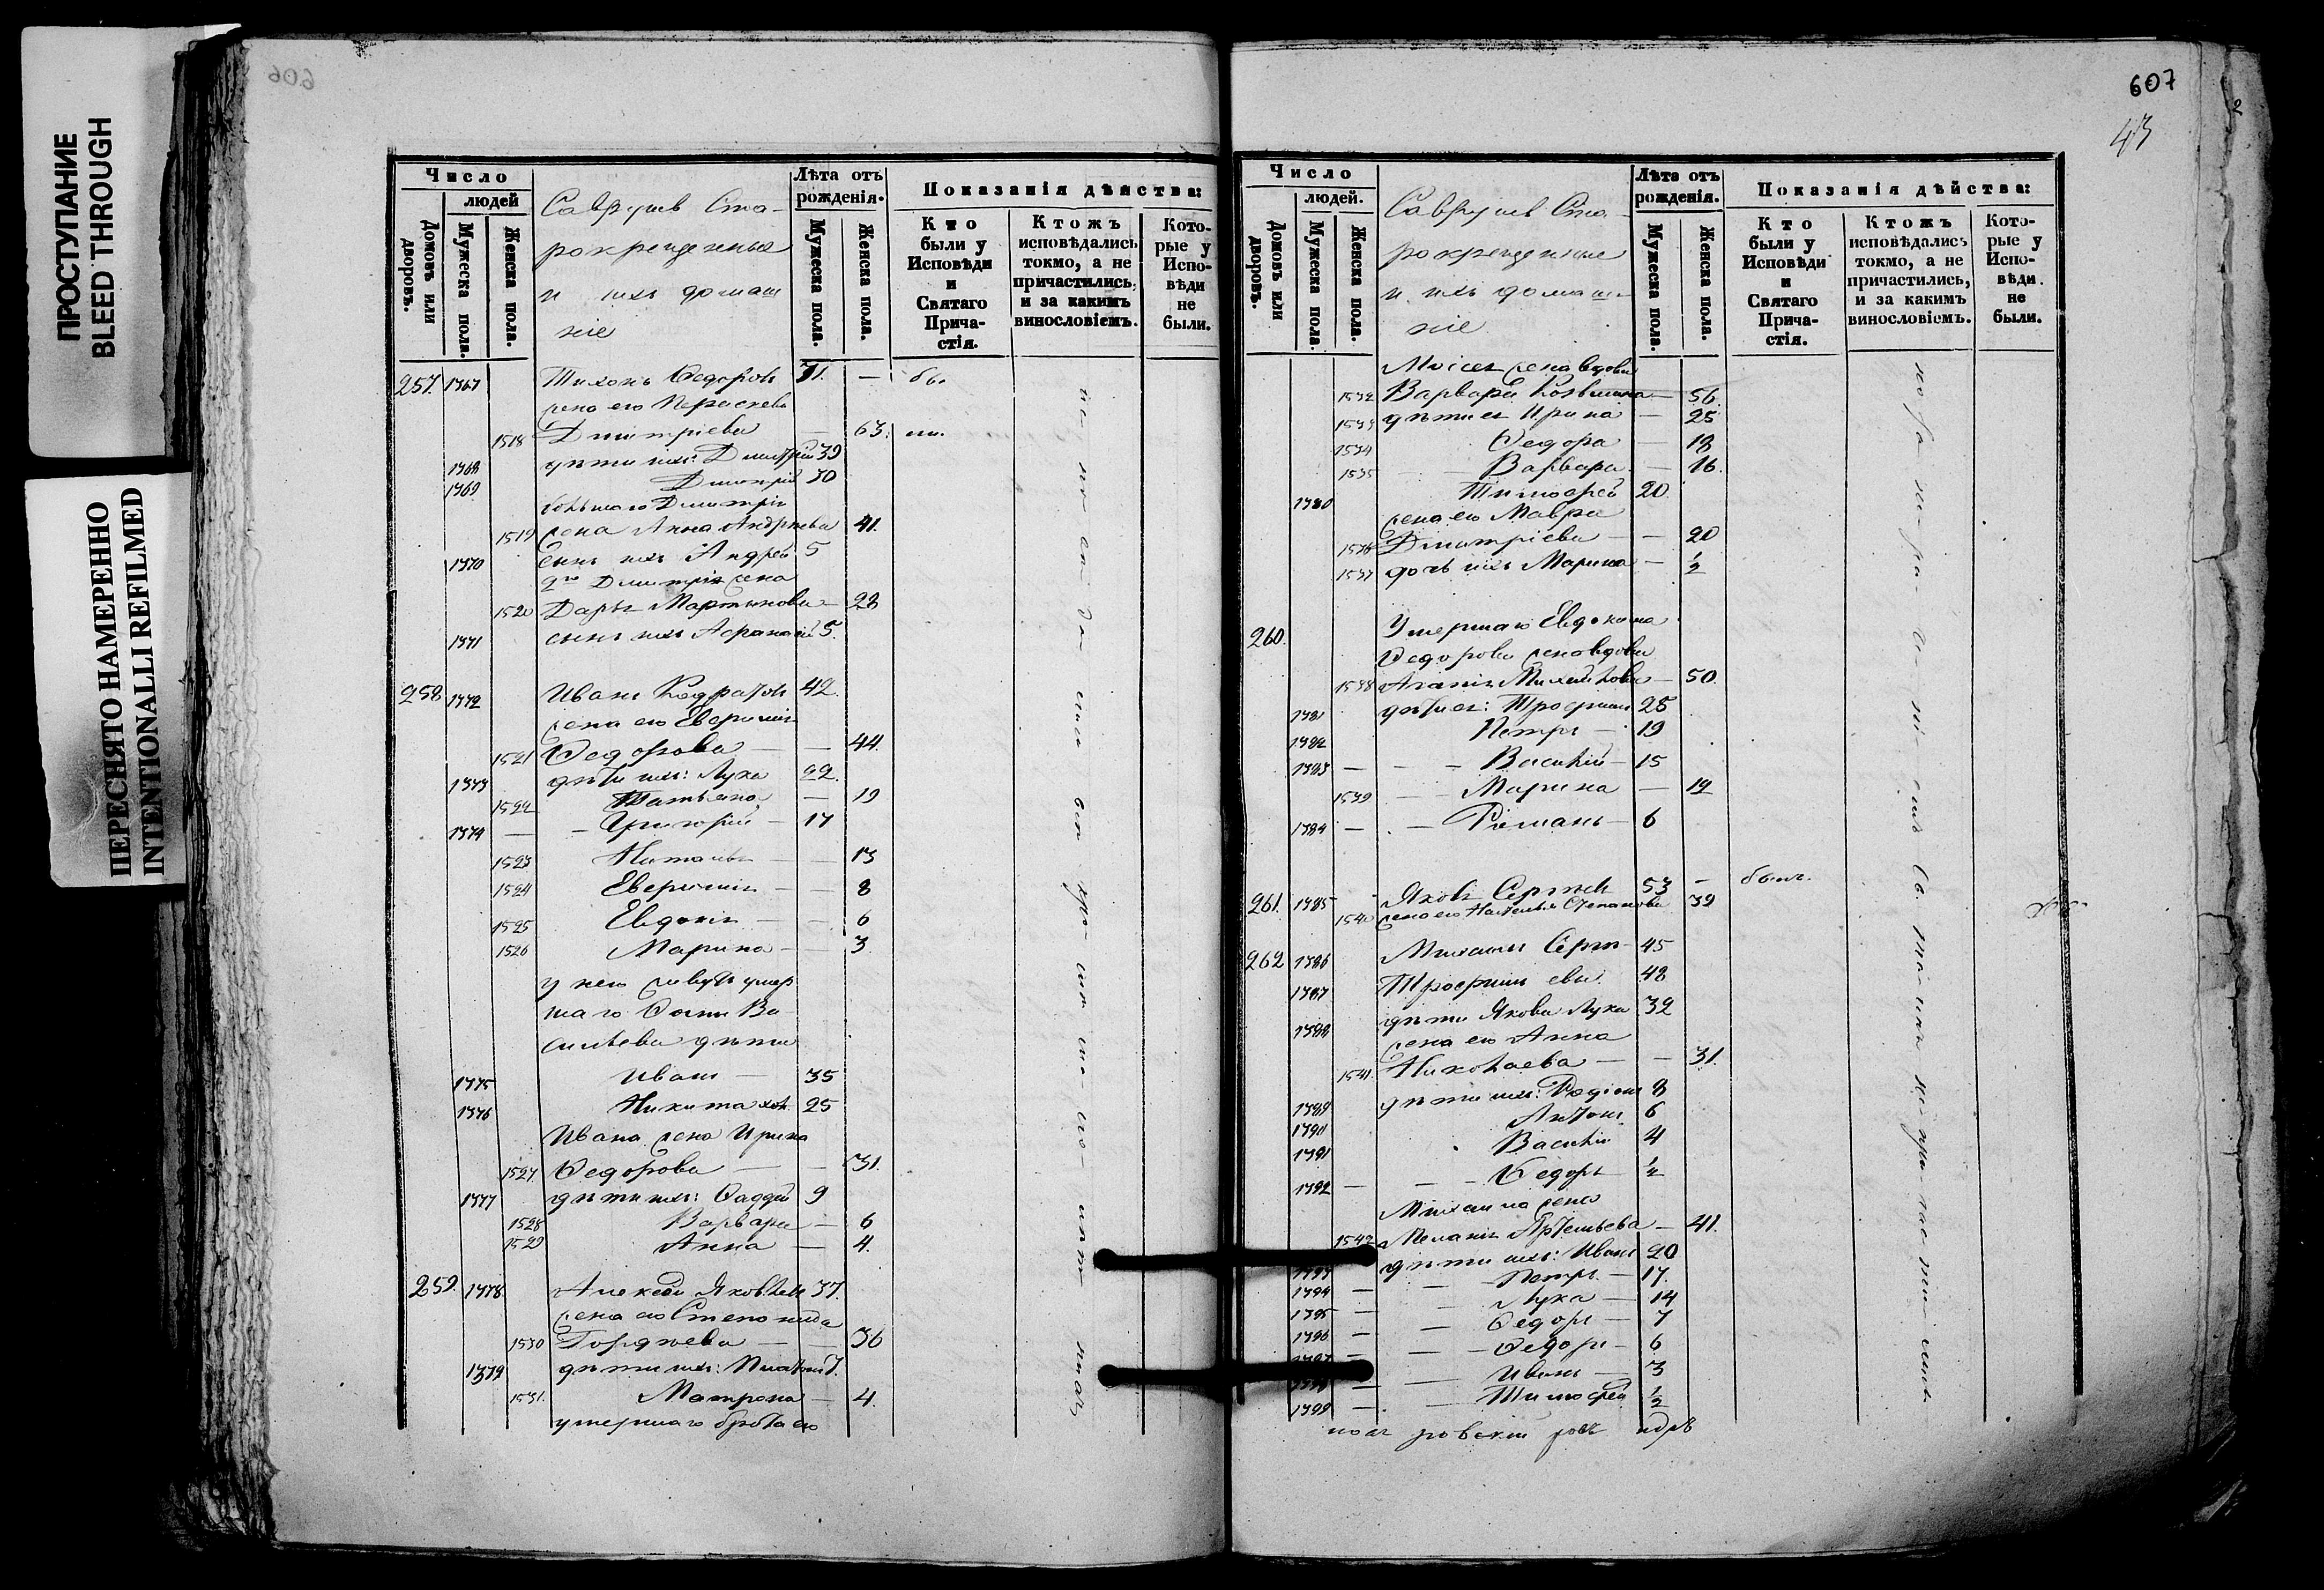 ПРОСТУПАНИЕ
BLEED THROUGH
ПЕРЕСНЯТО НАМЕРЕННО
INTENTIONALLI REFILMED
606
Число
людей
Домовъ или дворовъ.
Мужеска пола.
Женска пола.
Саврушъ Ста-
рокрещеные
и ихъ домаш
ніе
Лѣта отъ рожденія.
Мужеска пола.
Женска пола.
Показанія дѣйства:
Кто были у Исповѣди и Святаго Прича-стія.
Ктожъ исповѣдались токмо, а не причастились, и за какимъ винословіемъ.
Кото-рые у Испо-вѣди не были.
257. 1767 Тихонъ Ѳедоровъ 71. — бы
жена его Параскева
1518 Дмитріева — 63. ли.
1768 дѣти ихъ: Дмитрій 39
1769 Дмитрій 30
большаго Дмитрія
1519 жена Анна Андреева 41.
1770 сынъ ихъ Андрей 5
2го Дмитрія жена
1520 Дарья Мартынова — 28
1771 сынъ ихъ Афанасій 5.
258 1772 Иванъ Кодратовъ 42.
жена его Евфимія
1521 Ѳедорова — — 44.
1773 дѣти ихъ: Лука 22.
1522 Татьяна — 19
1774 — — Григорій — 17
1523 Наталья — — 13
1524 Евфимія — — 8
1525 Евдокія — — 6
1526 Марина — — 3.
у него живутъ умер
шаго Ѳомы Ва
сильева дѣти
1775 Иванъ — 35
1776 Никита хол. 25
Ивана жена Ирина
1527. Ѳедорова — — 31.
1777 дѣти ихъ: Ѳаддей 9
1528 Варвара — 6
1529 Анна — 4.
259. 1778 Алексей Яковлевъ 37.
жена его Степонида
1530 Гордѣева — — 36
1779 дѣти ихъ: Платонъ 7.
1531. Матрона — 4.
умершаго брата его
607
43
Число
людей.
Домовъ или дворовъ.
Мужеска пола.
Женска пола.
Саврушъ Ста-
рокрещеные
и ихъ домаш-
ніе
Лѣта отъ рожденія.
Мужеска пола.
Женска пола.
Показанія дѣйства:
Кто были у Исповѣди и Святаго Прича-стія.
Ктожъ исповѣдались токмо, а не причастились, и за какимъ винословіемъ.
Кото-рые у Испо-вѣди не были.
Моисея жена вдова
1532 Варвара Козьмина — 56.
1533 дѣти ея Ирина — 25
1534 Ѳедора — 18
1535 Варвара — 16.
1780 Тимофей 20.
жена его Мавра
1536 Дмитріева — — 20
1537 дочь ихъ Марина — ½
260. Умершаго Евдокима
Ѳедорова жена вдова
1538 Агапія Михайлова — 50.
1781 дѣти ея: Трофимъ 28
1782 Петръ — 19
1783 — — — Василій — 15
1539 — — Марина — 12
1784 — — Романъ — 6
261. 1785 Яковъ Сергѣевъ 53 — былъ.
1540 жена его Наталья Степанова 39
262 1786 Михаилъ Сергѣ- 45
1787 Трофимъ евы. 42
1788 дѣти Якова Лука 32
жена его Анна
1541. Николаева — — 31.
1789 дѣти ихъ: Родіонъ 8
1790 Антонъ 6
1791 Василій 4
1792 — — — Ѳедоръ ½
Михаила жена
1542 Меланія Артемьева — 41.
1793 дѣти ихъ: Иванъ 20
1794 — — Петръ — 17.
1795 — — Лука — 14
1796 — — Ѳедоръ — 7
— — Ѳедоръ — 6
— — Иванъ — 3
1799 — — Тимофей ½